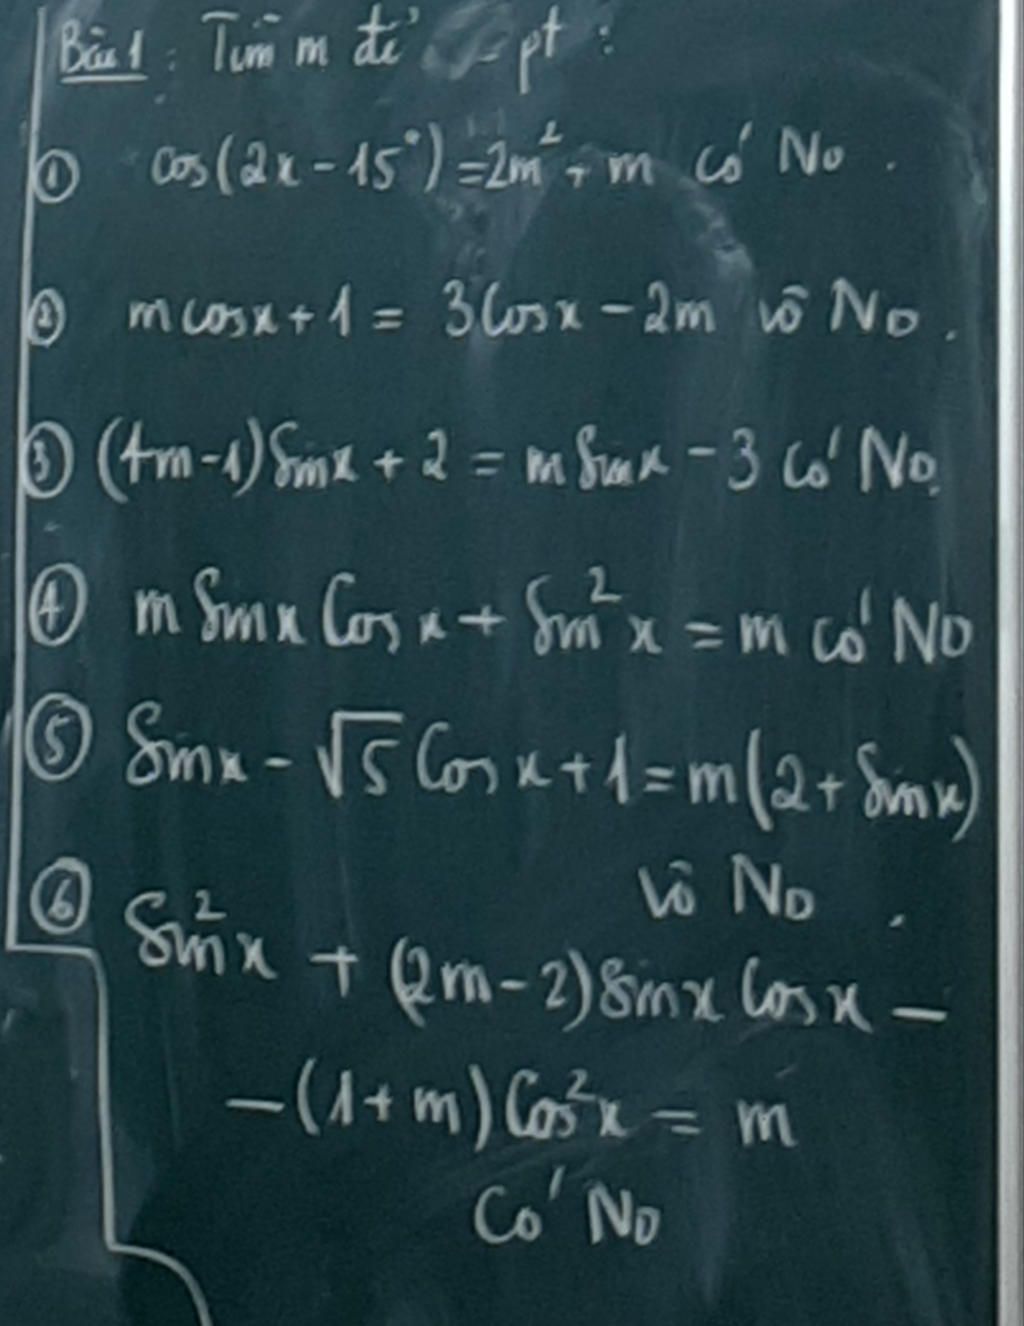 Bài 1 : Tìm m để pt :
① cos(2x - 15°) = 2m² + m có No .
② m cosx + 1 = 3 Cosx - 2m vô No .
③ (4m-1) Sinx + 2 = m Sinx - 3 có No.
④ m Sinx Cosx + Sin²x = m có No
⑤ Sinx - √5 Cosx + 1 = m(2 + Sinx)
vô No .
⑥ Sin²x + (2m-2) Sinx Cosx -
-(1+m) Cos²x = m
Có No